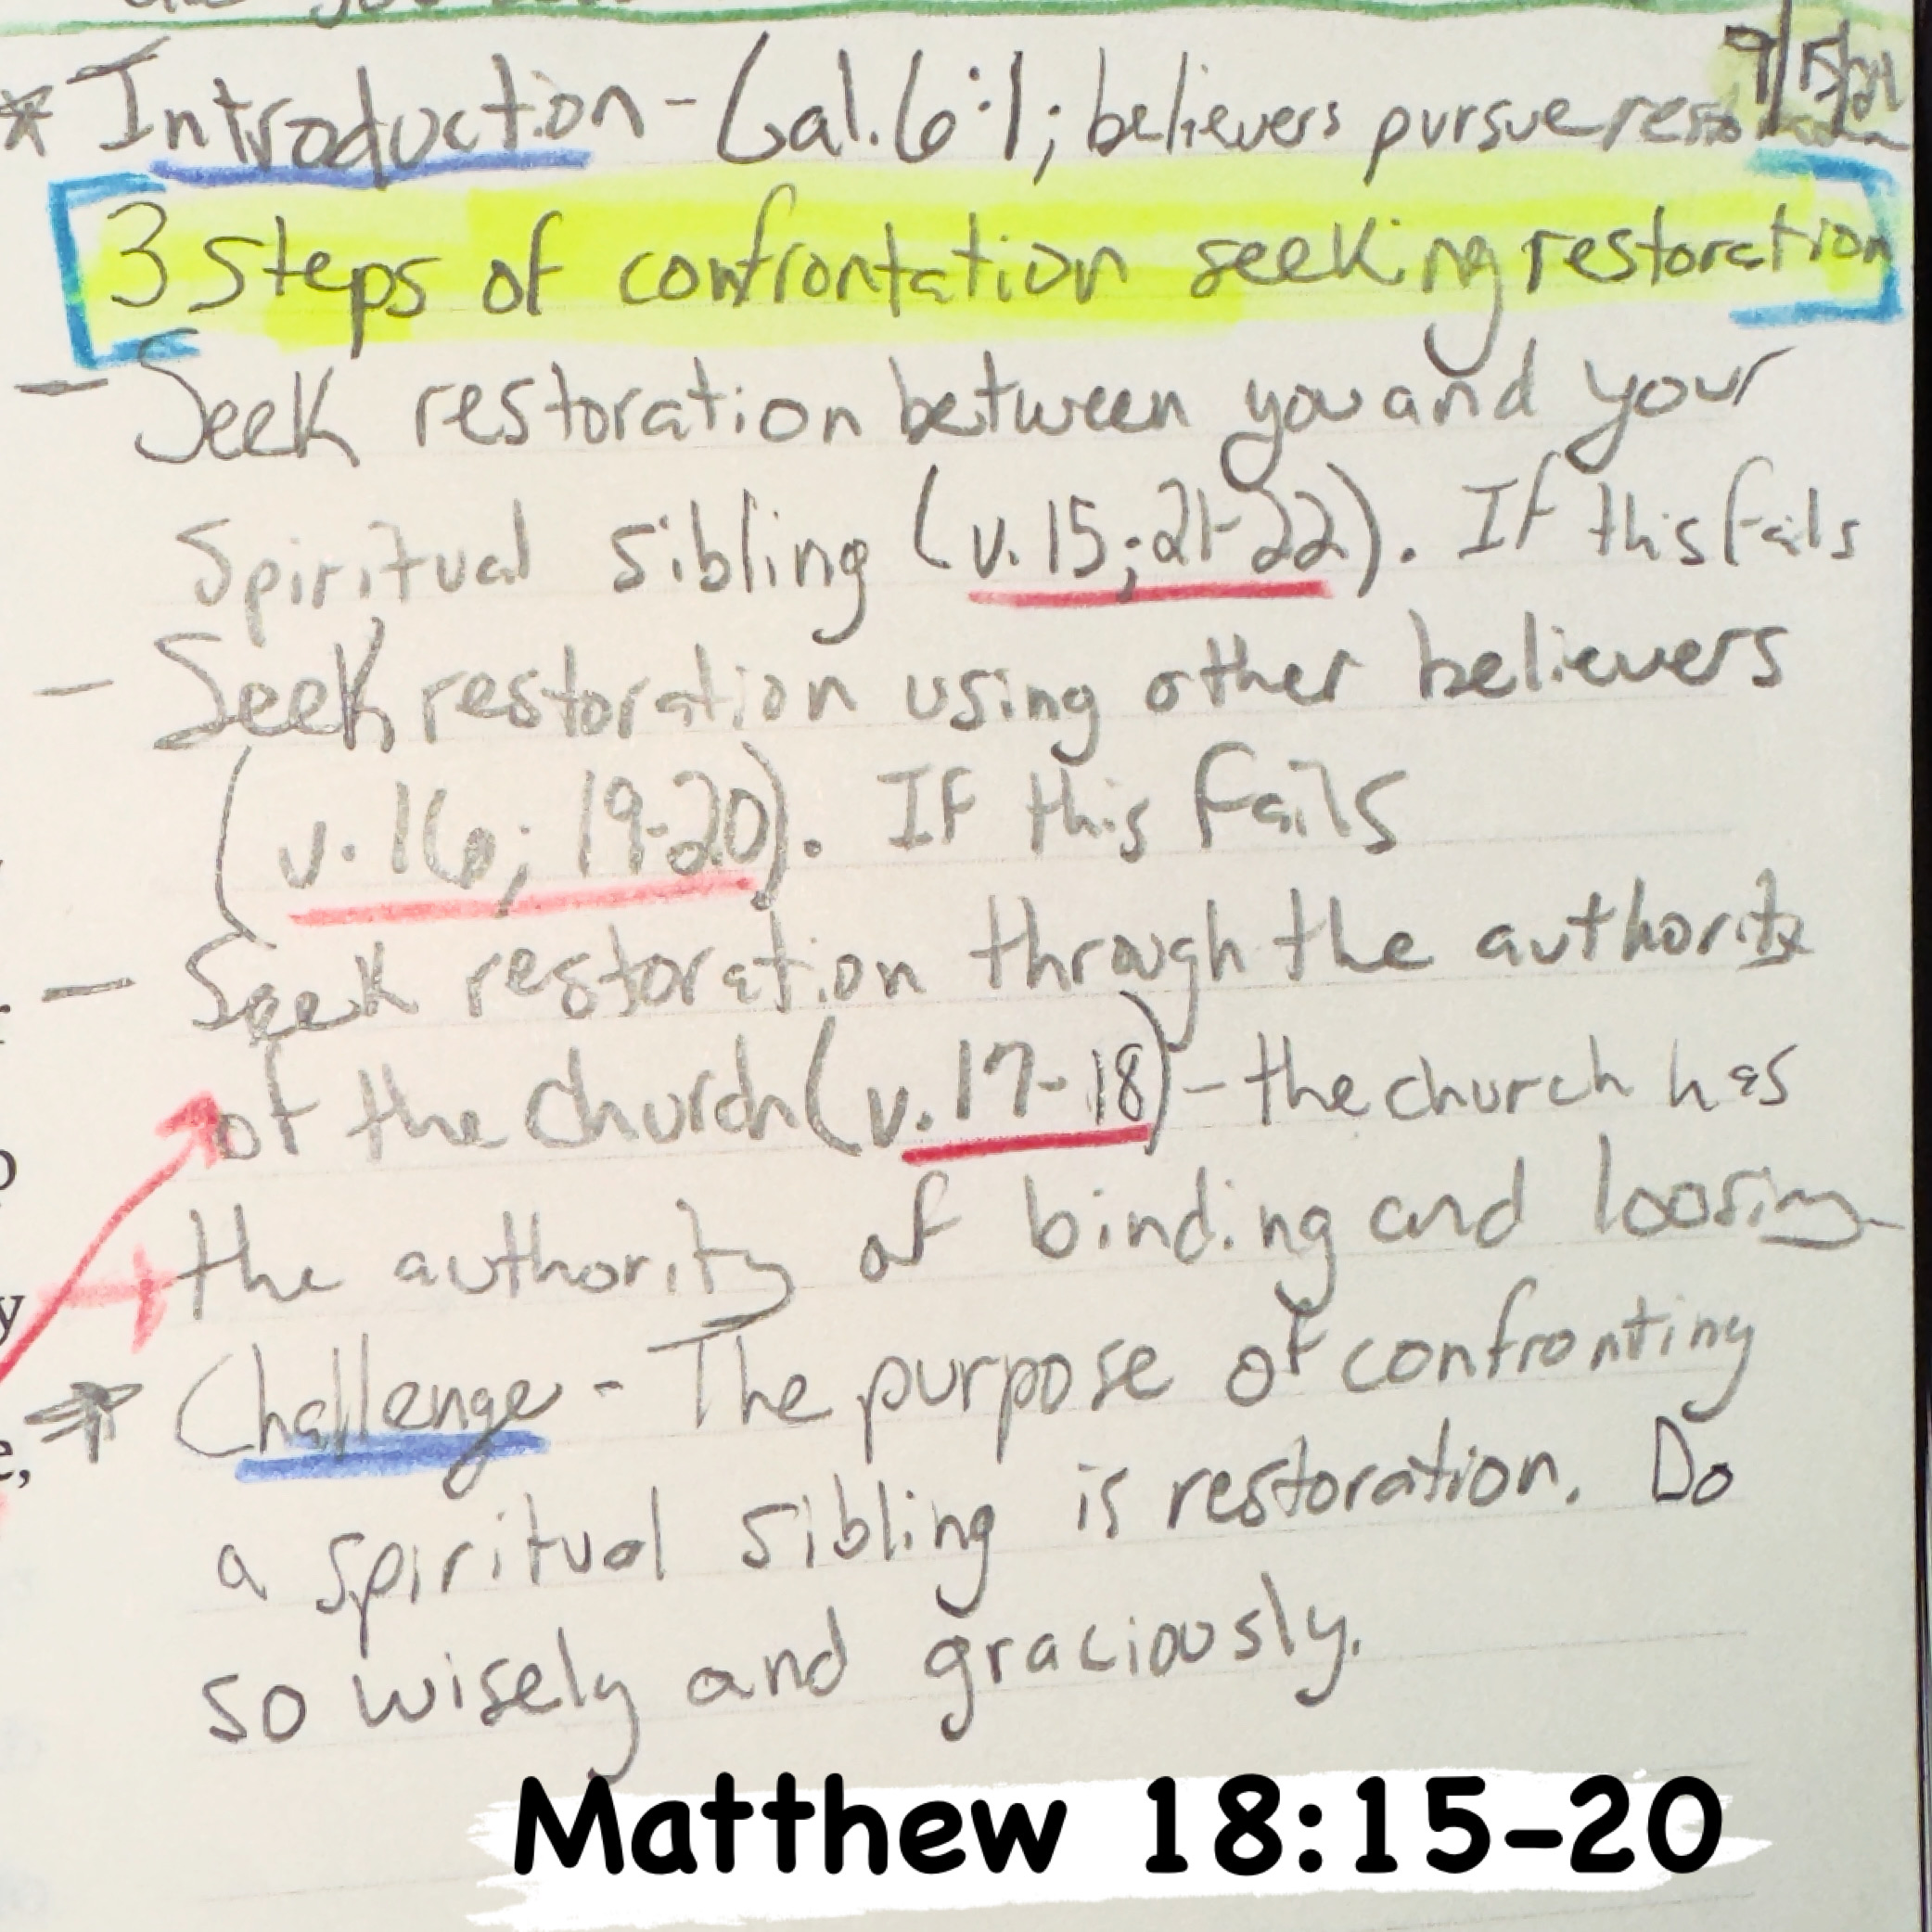 9/15/21
* Introduction - Gal. 6:1; believers pursue restoration
[3 Steps of confrontation seeking restoration]
- Seek restoration between you and your
spiritual sibling (v. 15; 21-22). If this fails
- Seek restoration using other believers
(v. 16; 19-20). If this fails
- Seek restoration through the authority
of the church (v. 17-18) - the church has
the authority of binding and loosing
* Challenge - The purpose of confronting
a spiritual sibling is restoration. Do
so wisely and graciously.
Matthew 18:15-20